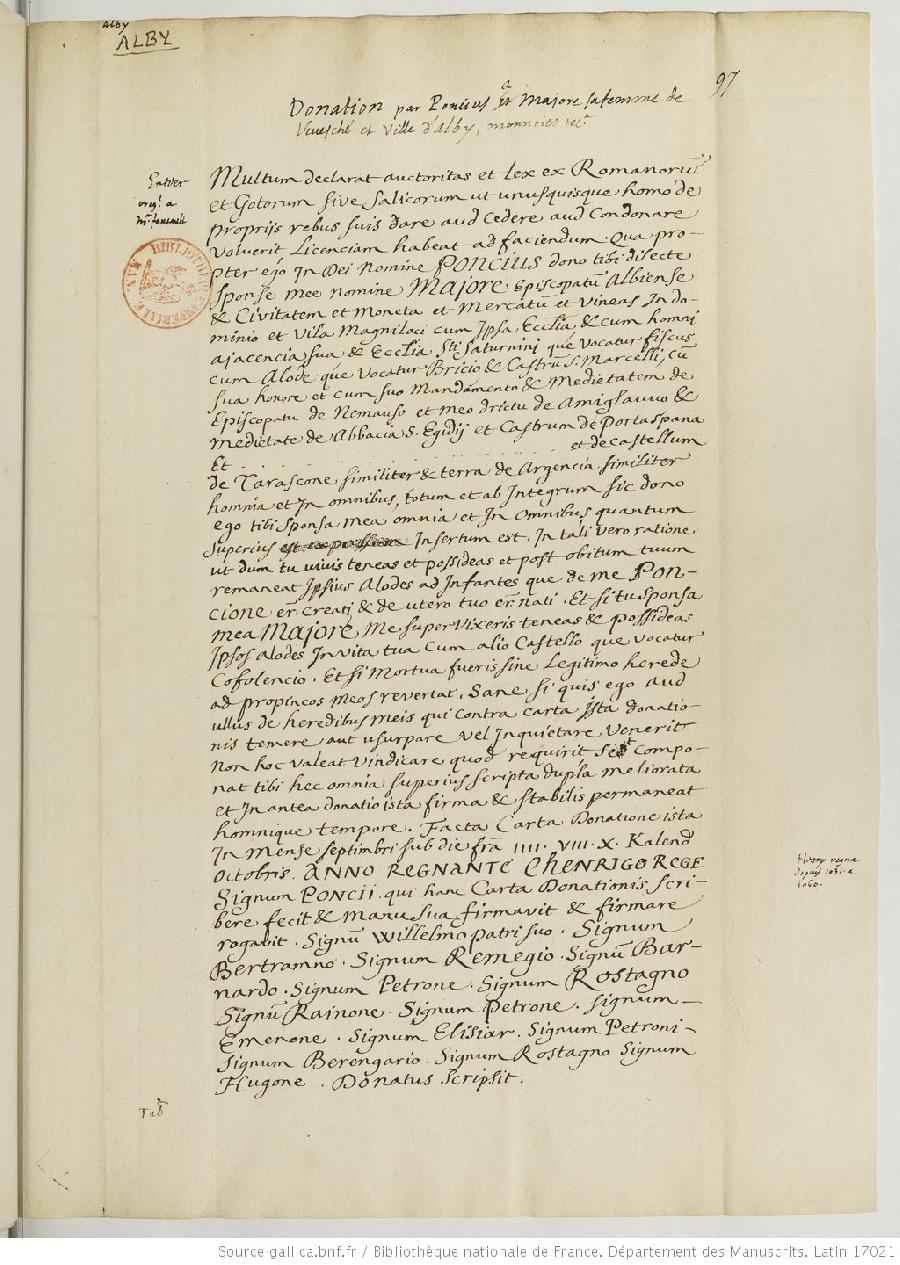 Alby
ALBY
97
Donation par Poncius à Majore sa femme de
l'Evesché et ville d'Alby, monnoies etc.
MAN. BIBLIOTHEQUE IMPERIALE
Multum declarat auctoritas et Lex ex Romanorum
et Gotorum sive Salicorum ut unusquisque homo de
proprijs rebus suis dare aud Cedere aud Condonare
Voluerit Licenciam habeat ad faciendum. Qua pro-
pter ego In Dei Nomine PONCIUS dono tibi dilecte
Sponse mee nomine MAJORE Episcopatū Albiense
& Civitatem et Moneta et Mercatū et Vineas In do-
minio et Vila Magniloci cum Ipsa Ecclia & cum homni
ajacencia sua & Ecclia Sti Saturnini que vocatur fiscus
cum Alode que vocatur Bricio & Castrū S. Marcelli, cū
sua honore et cum suo Mandamento & Medietatem de
Episcopatu de Nemauso et meo drictu de Amiglauvo &
medietate de Abbacia S. Egidij et Castrum de Portaspana
Et . . . . . . . . . . et de castellum
de Tarascone similiter & terra de Argencia similiter
homnia et In omnibus, totum et ab Integrum sic dono
ego tibi Sponsa mea omnia et In Omnibus quantum
superius Insertum est. In tali vero ratione
ut dum tu vivis teneas et possideas et post obitum tuum
remaneat Ipsius Alodes ad Infantes que de me PON-
CIONE er̄ creati & de utero tuo er̄ nati. Et si tu sponsa
mea MAJORE me super Vixeris teneas & possideas
Ipsos Alodes In vita tua Cum alio Castello que vocatur
Cofolencio. Et si Mortua fueris sine Legitimo herede
ad propincos meos revertat. Sane si quis ego aud
ullus de heredibus meis qui contra carta Ista donatio-
nis temere aut usurpare vel Inquietare Venerit
Non hoc valeat Vindicare quod requirit set Compo-
nat tibi hec omnia superius scripta dupla meliorata
et In antea donatio ista firma & stabilis permaneat
homnique tempore. Facta Carta Donatione ista
In Mense septimbri sub die fra IIII. VIII. X. Kalend
Octobris. ANNO REGNANTE CHENRIGO REGE
Signum PONCII. qui hanc Carta Donationis scri-
bere fecit & Manu Sua firmavit & firmare
rogavit. Signū Willelmo patri suo. Signum
Bertramno. Signum Remegio. Signū Bar-
nardo. Signum Petrone. Signum Rostagno
Signū Rainone. Signum Petrone. Signum
Emenone. Signum Elisiar. Signum Petroni-
Signum Berengario. Signum Rostagno Signum
Hugone. Donatus Scripsit.
Henry regna
depuis 1031 a
1060.
Source gallica.bnf.fr / Bibliothèque nationale de France. Département des Manuscrits. Latin 17021